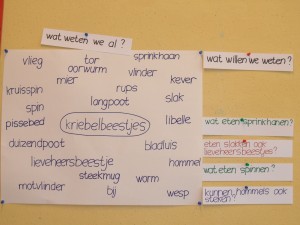 wat weten we al?
vlieg tor sprinkhaan
oorwurm vlinder
mier kever
kruisspin rups
langpoot slak
spin
pissebed kriebelbeestjes libelle
duizendpoot bladluis
lieveheersbeestje hommel
steekmug worm
motvlinder bij wesp
wat willen we weten?
wat eten sprinkhanen?
eten slakken ook
lieveheersbeestjes?
wat eten spinnen?
kunnen hommels ook
steken?